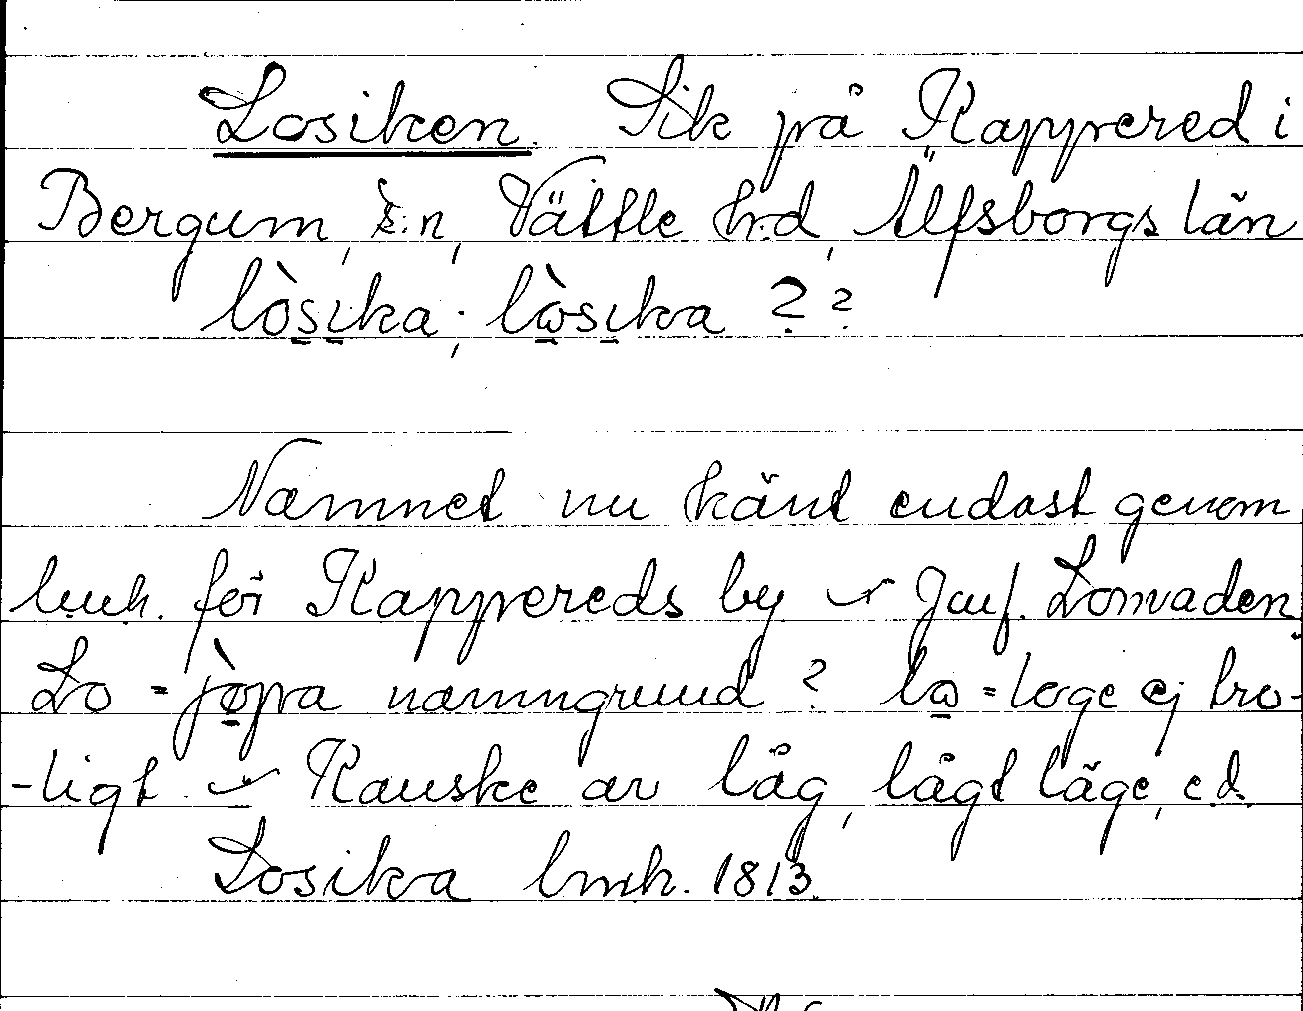 Losiken. Sik på Rappered i
Bergum, s:n, Vättle h:d, Älfsborgs län
lòsika; lòsika ? ?
Namnet nu känt endast genom
lmk. för Rappereds by – Jmf. Lomvaden
Lo = namngrund ? lo = loge ej tro-
-ligt. – Kanske av låg, lågt läge, e.d.
Losika lmk. 1813.